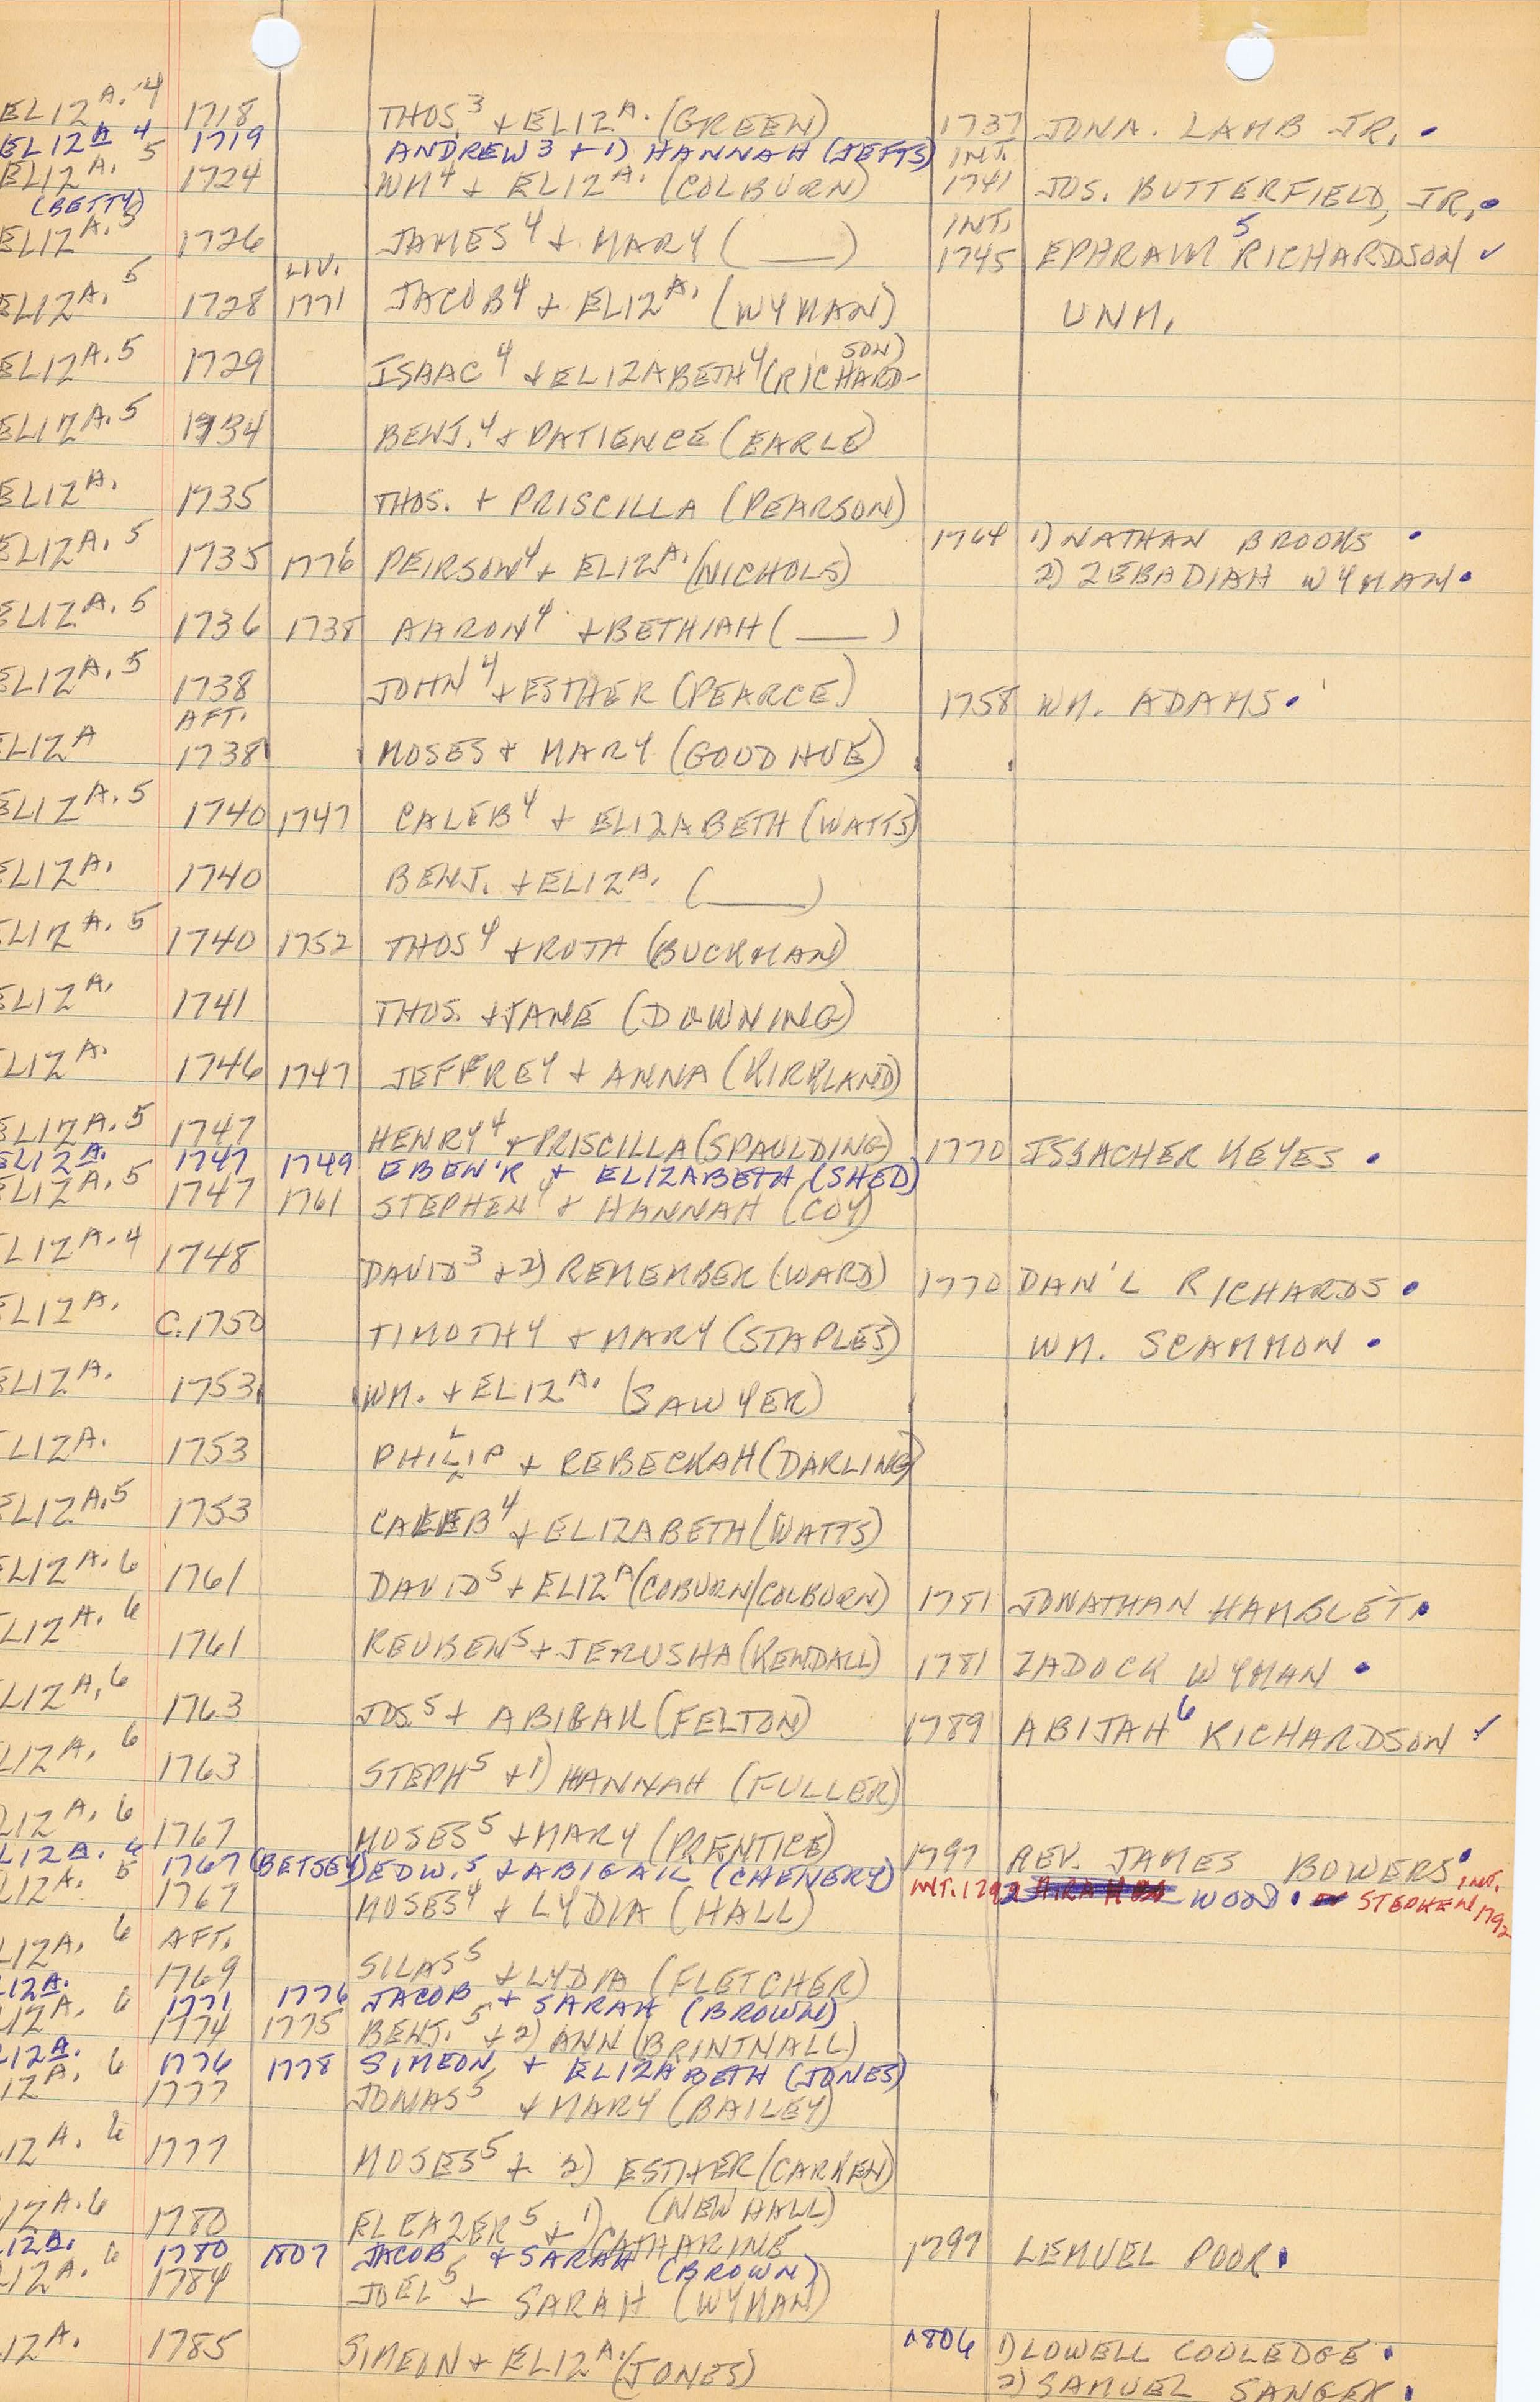 ELIZA. 4 1718 THOS.3 + ELIZA. (GREEN) 1737 JONA. LAMB JR.
ELIZA 4 1719 ANDREW3 + 1) HANNAH (JEFTS) INT.
ELIZA. 5 1724 WM4 + ELIZA. (COLBURN) 1741 JOS. BUTTERFIELD, JR.
(BETTY) INT.
ELIZA. 5 1726 JAMES4 + MARY ( ___ ) 1745 EPHRAIM5 RICHARDSON ✓
LIV.
ELIZA. 5 1728 1771 JACOB4 + ELIZA. (WYMAN) UNM.
SON)
ELIZA. 5 1729 ISAAC4 + ELIZABETH4 (RICHARD-
ELIZA. 5 1734 BENJ.4 + PATIENCE (EARLE)
ELIZA. 1735 THOS. + PRISCILLA (PEARSON)
ELIZA. 5 1735 1776 PEIRSON4 + ELIZA. (NICHOLS) 1764 1) NATHAN BROOKS
2) ZEBADIAH WYMAN
ELIZA. 5 1736 1738 AARON4 + BETHIAH ( ___ )
ELIZA. 5 1738 JOHN4 + ESTHER (PEARCE) 1758 WM. ADAMS
AFT.
ELIZA 1738 MOSES + MARY (GOODHUE)
ELIZA. 5 1740 1747 CALEB4 + ELIZABETH (WATTS)
ELIZA. 1740 BENJ. + ELIZA. ( ____ )
ELIZA. 5 1740 1752 THOS4 + RUTH (BUCKMAN)
ELIZA. 1741 THOS. + JANE (DOWNING)
ELIZA. 1746 1747 JEFFREY + ANNA (KIRKLAND)
ELIZA. 5 1747 HENRY4 + PRISCILLA (SPAULDING) 1770 ISSACHER KEYES
ELIZA. 1747 1749 EBEN'R + ELIZABETH (SHED)
ELIZA. 5 1747 1761 STEPHEN4 + HANNAH (COY)
ELIZA. 4 1748 DAVID3 + 2) REMEMBER (WARD) 1770 DAN'L RICHARDS
ELIZA. C.1750 TIMOTHY + MARY (STAPLES) WM. SCAMMON
ELIZA. 1753 WM. + ELIZA. (SAWYER)
L
ELIZA. 1753 PHILIP + REBECKAH (DARLING)
ELIZA. 5 1753 CALEB4 + ELIZABETH (WATTS)
ELIZA. 6 1761 DAVID5 + ELIZA (COBURN/COLBURN) 1781 JONATHAN HAMBLET
ELIZA. 6 1761 REUBEN5 + JERUSHA (KENDALL) 1781 ZADOCK WYMAN
LIZA. 6 1763 JOS.5 + ABIGAIL (FELTON) 1789 ABIJAH6 RICHARDSON ✓
LIZA. 6 1763 STEPH5 + 1) HANNAH (FULLER)
LIZA. 6 1767 MOSES5 + MARY (PRENTICE) 1797 REV. JAMES BOWERS
LIZA. 6 1767 (BETSEY) EDW.5 + ABIGAIL (CHENERY) INT. 1792 WOOD STEPHEN INT. 1792
LIZA. 5 1767 MOSES4 + LYDIA (HALL)
AFT.
LIZA. 6 1769 SILAS5 + LYDIA (FLETCHER)
LIZA. 1771 1776 JACOB + SARAH (BROWN)
LIZA. 6 1774 1775 BENJ.5 + 2) ANN (BRINTNALL)
LIZA. 1776 1778 SIMEON + ELIZABETH (JONES)
IZA. 6 1777 JONAS5 + MARY (BAILEY)
IZA. 6 1777 MOSES5 + 2) ESTHER (CARKEN)
(NEWHALL)
IZA. 6 1780 ELEAZER5 + 1) CATHARINE
IZA. 1780 1807 JACOB + SARAH (BROWN) 1797 LEMUEL POOR
IZA. 6 1784 JOEL5 + SARAH (WYMAN)
IZA. 1785 SIMEON + ELIZA. (JONES) 1806 1) LOWELL COOLEDGE
2) SAMUEL SANGER